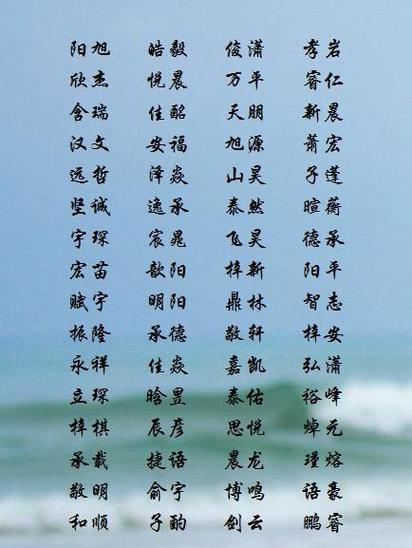 阳旭 皓毅 俊潇 孝岩
欣杰 悦晨 万平 睿仁
含瑞 佳酩 天朋 新晨
汉文 安福 旭源 萧宏
远哲 泽焱 山昊 子蓬
坚诚 逸承 泰然 暄蘅
宇琛 宸晁 飞昊 德承
宏苗 歆阳 梓新 阳平
赋宇 明阳 鼎林 智志
振隆 承德 敬轩 梓安
永祥 佳焱 嘉凯 弘潇
立琛 晗昱 泰佑 裕峰
梓棋 辰彦 思悦 焯元
承载 捷语 晨龙 瑾熔
敬明 俞宇 博鸣 语豪
和顺 子酌 剑云 鹏睿